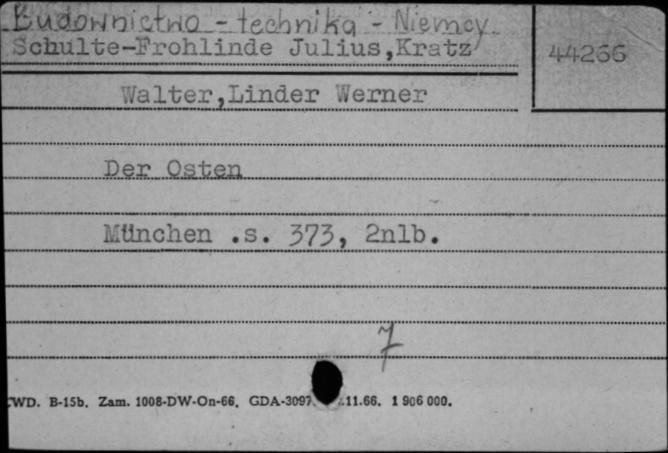 Budownictwo - technika - Niemcy
Schulte-Frohlinde Julius,Kratz
44266
Walter,Linder Werner
Der Osten
München .s. 373, 2nlb.
7
CWD. B-15b. Zam. 1008-DW-On-66. GDA-3097 .11.66. 1 906 000.